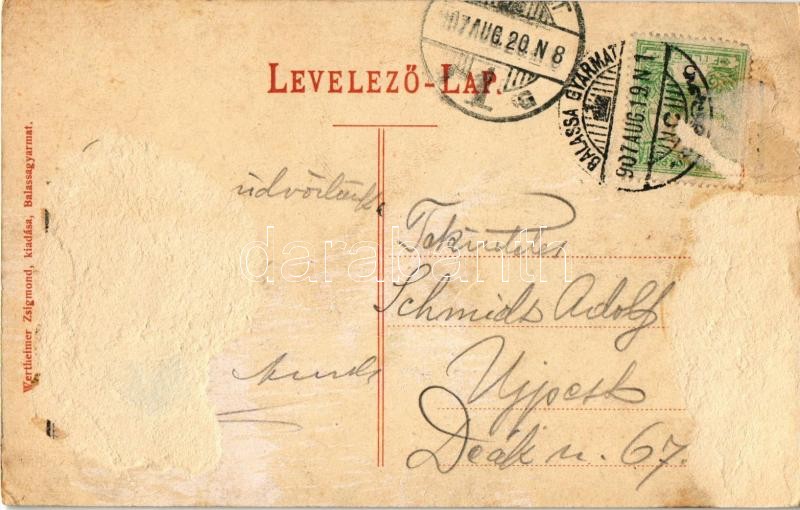 LEVELEZŐ-LAP.
907 AUG. 20. N 8
BALASSA GYARMAT
907 AUG. 19. N 1
Wertheimer Zsigmond, kiadása, Balassagyarmat.
Tekintetes
Schmidt Adolf
Ujpest
Deák u. 67.
darabanth